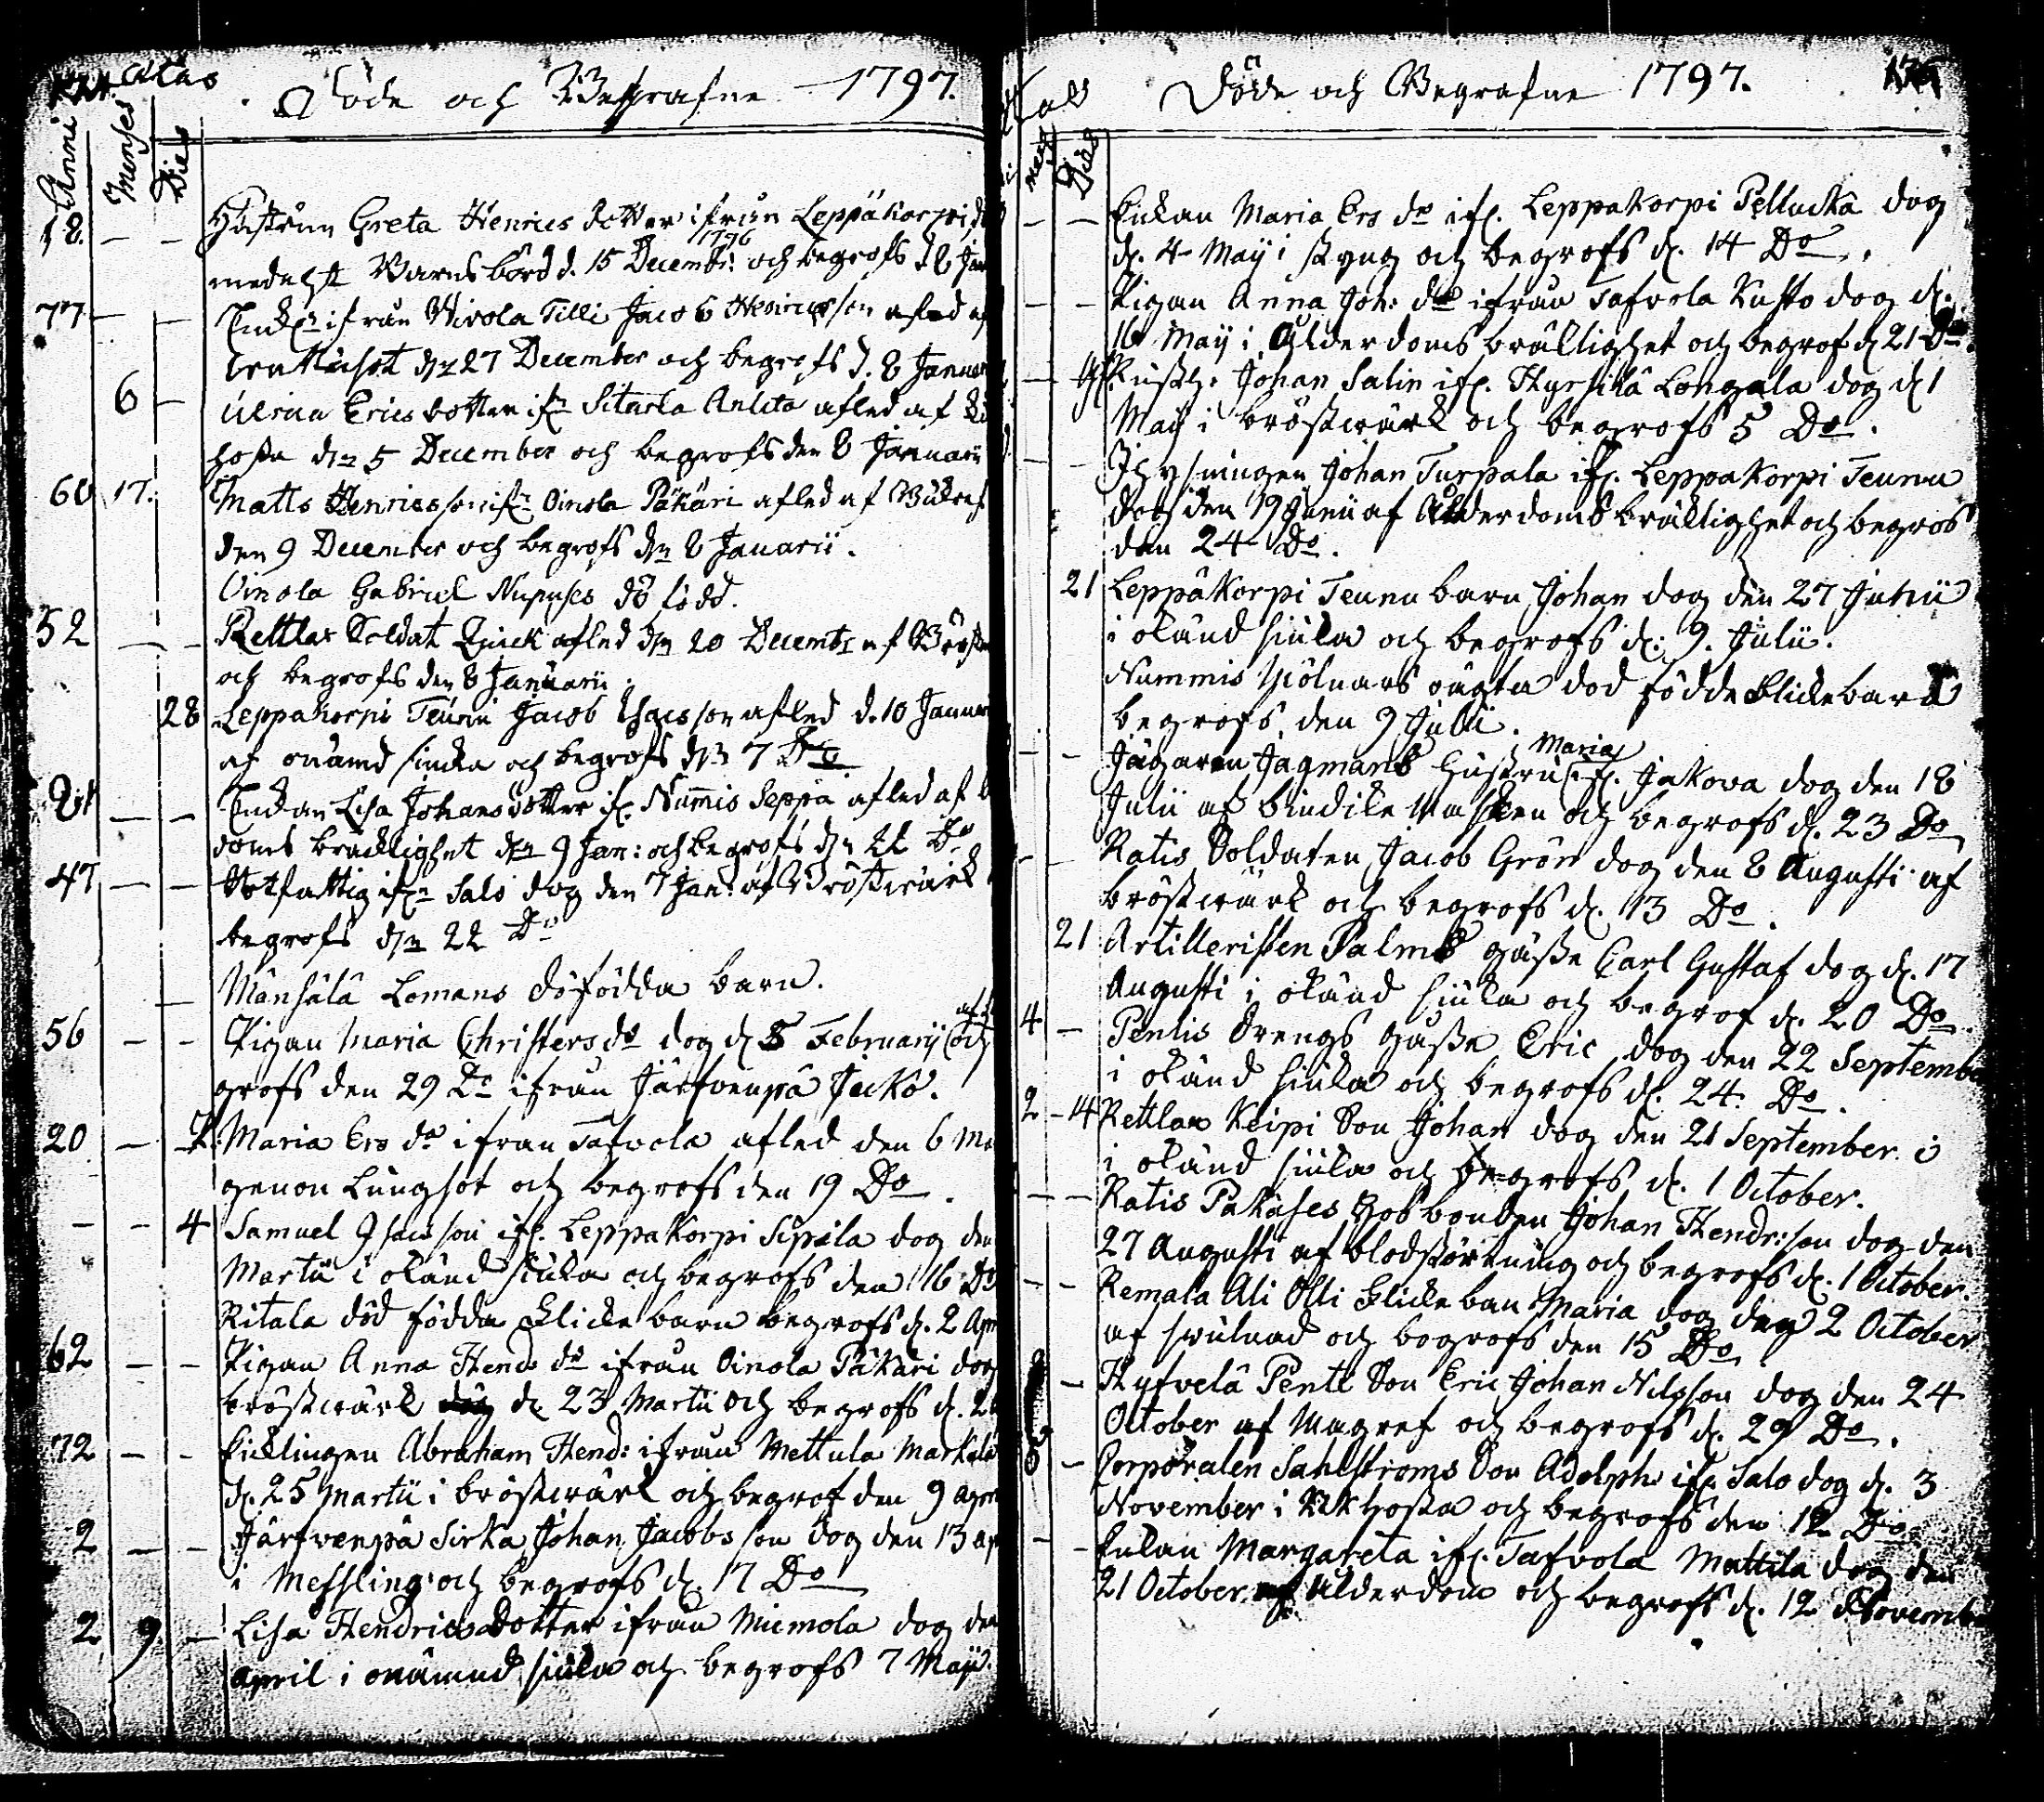 Ætas
Döde och Begrafne 1797.
Anni Menses Dies
18. Hustrun Greta Henrics dotter ifrån Leppäkorpi
medelst Barnsbörd d. 15 Decembr: 1796 och begrofs d. 8 Jan
77 Enkl: ifrån Hirola Tilli Jacob Henricsson afled af
den 27 December och begrofs d. 8 Januar
6 Ulrica Erics dotter ifn Sitarla Anlita afled af
hosta den 5 December och begrofs den 8 Januarii
60 17. Matts Henricsson ifn Oinola Päkäri afled af
den 9 December och begrofs den 8 Januarii.
Oinola Gabriel Nupuses dö född.
52 Rettlax Soldat Quick afled den 20 Decembr af Bröst
och begrofs den 8 Januarii.
28 Leppäkorpi Teunu Jacob Isacsson afled d. 10 Januar
af onämd siuka och begrofs den 7 Do
81 Enkan Lisa Johansdotter if. Nummis Seppä afled af
doms bräcklighet den 9 Jan: och begrofs den 22 Do
47 Rotfattig ifn Salo dog den 7 Jan: af Bröstwärk
begrofs den 22 Do
Månsälä Lomans dödfödda barn.
56 Pigan Maria Christersdr dog d 8 Februarij och
grofs den 29 Do ifrån Järfvenpä Jecko.
20 Maria Ers dr ifrån Tafvola afled den 6 Ma
genom Lungsot och begrofs den 19 Do.
4 Samuel Isacsson if. Leppäkorpi Sipilä dog den
Martii i okänd siuka och begrofs den 16 Do
Ritala död födda Flicke barn begrofs d. 2 Apr
62 Pigan Anna Hend: dr ifrån Oinola Päkäri dog
bröstwärk d. 23 Martii och begrofs d. 2
72 Enklingen Abraham Hend: ifrån Mettula Markula
d. 25 Martii i bröstwärk och begrof den 9 Apr
2 Järfvenpä Sirka Johan Jacobsson dog den 13 Ap
i Messling och begrofs d. 17 Do
2 9. Lisa Hendrics Dotter ifrån Miemola dog den
April i onämnd siuka och begrofs 7 Maji.
Döde och Begrafne 1797.
Dies
Enkan Maria Ers dr if. Leppäkorpi Pelluckä dog
d. 4 Maij i styng och begrofs d. 14 Do.
Pigan Anna Joh: dr ifrån Tafvola Kusto dog d.
16 Maij i Ålderdoms bräcklighet och begrof d 21 Do.
Rusth. Johan Salin if. Hyrsilä Longala dog d 1
Maij i bröstwärk och begrofs 5 Do.
Inhysningen Johan Turpala if. Leppäkorpi Teunu
dog den 19 Junii af Ålderdoms bräcklighet och begrofs
den 24 Do.
21 Leppäkorpi Teunu barn Johan dog den 27 Junii
i okänd siuka och begrofs d. 9. Julii.
Nummis Mölnars oägta död födde Flickebarn
begrofs den 9 Julii.
Jägaren Jagmans Hustru Maria if. Jakova dog den 18
Julii af bindike Masken och begrofs d. 23 Do
Ratis Soldaten Jacob Grön dog den 8 Augusti af
bröstwärk och begrofs d. 13 Do.
21 Artilleristen Palms gosse Carl Gustaf dog d. 17
Augusti i okänd siuka och begrof d. 20 Do.
4 Pentis Drengs gosse Eric dog den 22 September
i okänd siuka och begrofs d. 24. Do.
2 - 14 Rettlax Keipi Son Johan dog den 21 September i
i okänd siuka och begrofs d. 1 October.
Ratis Pakases Husbonden Johan Hendr:son dog den
27 Augusti af blodstörtning och begrofs d. 1 October.
Remala Ali Olli Flicke barn Maria dog den 2 October
af swulnad och begrofs den 15 Do
Hyfvelä Pentl Son Eric Johan Nilsson dog den 24
October af Magref och begrofs d. 29 Do.
Corporalen Sahlstroms Son Adolph if. Salo dog d. 3
November i Kikhosta och begrofs den 12 Do
Enkan Margareta if. Tafvola Mattila dog den
21 October af Ålderdom och begrofs d. 12 November